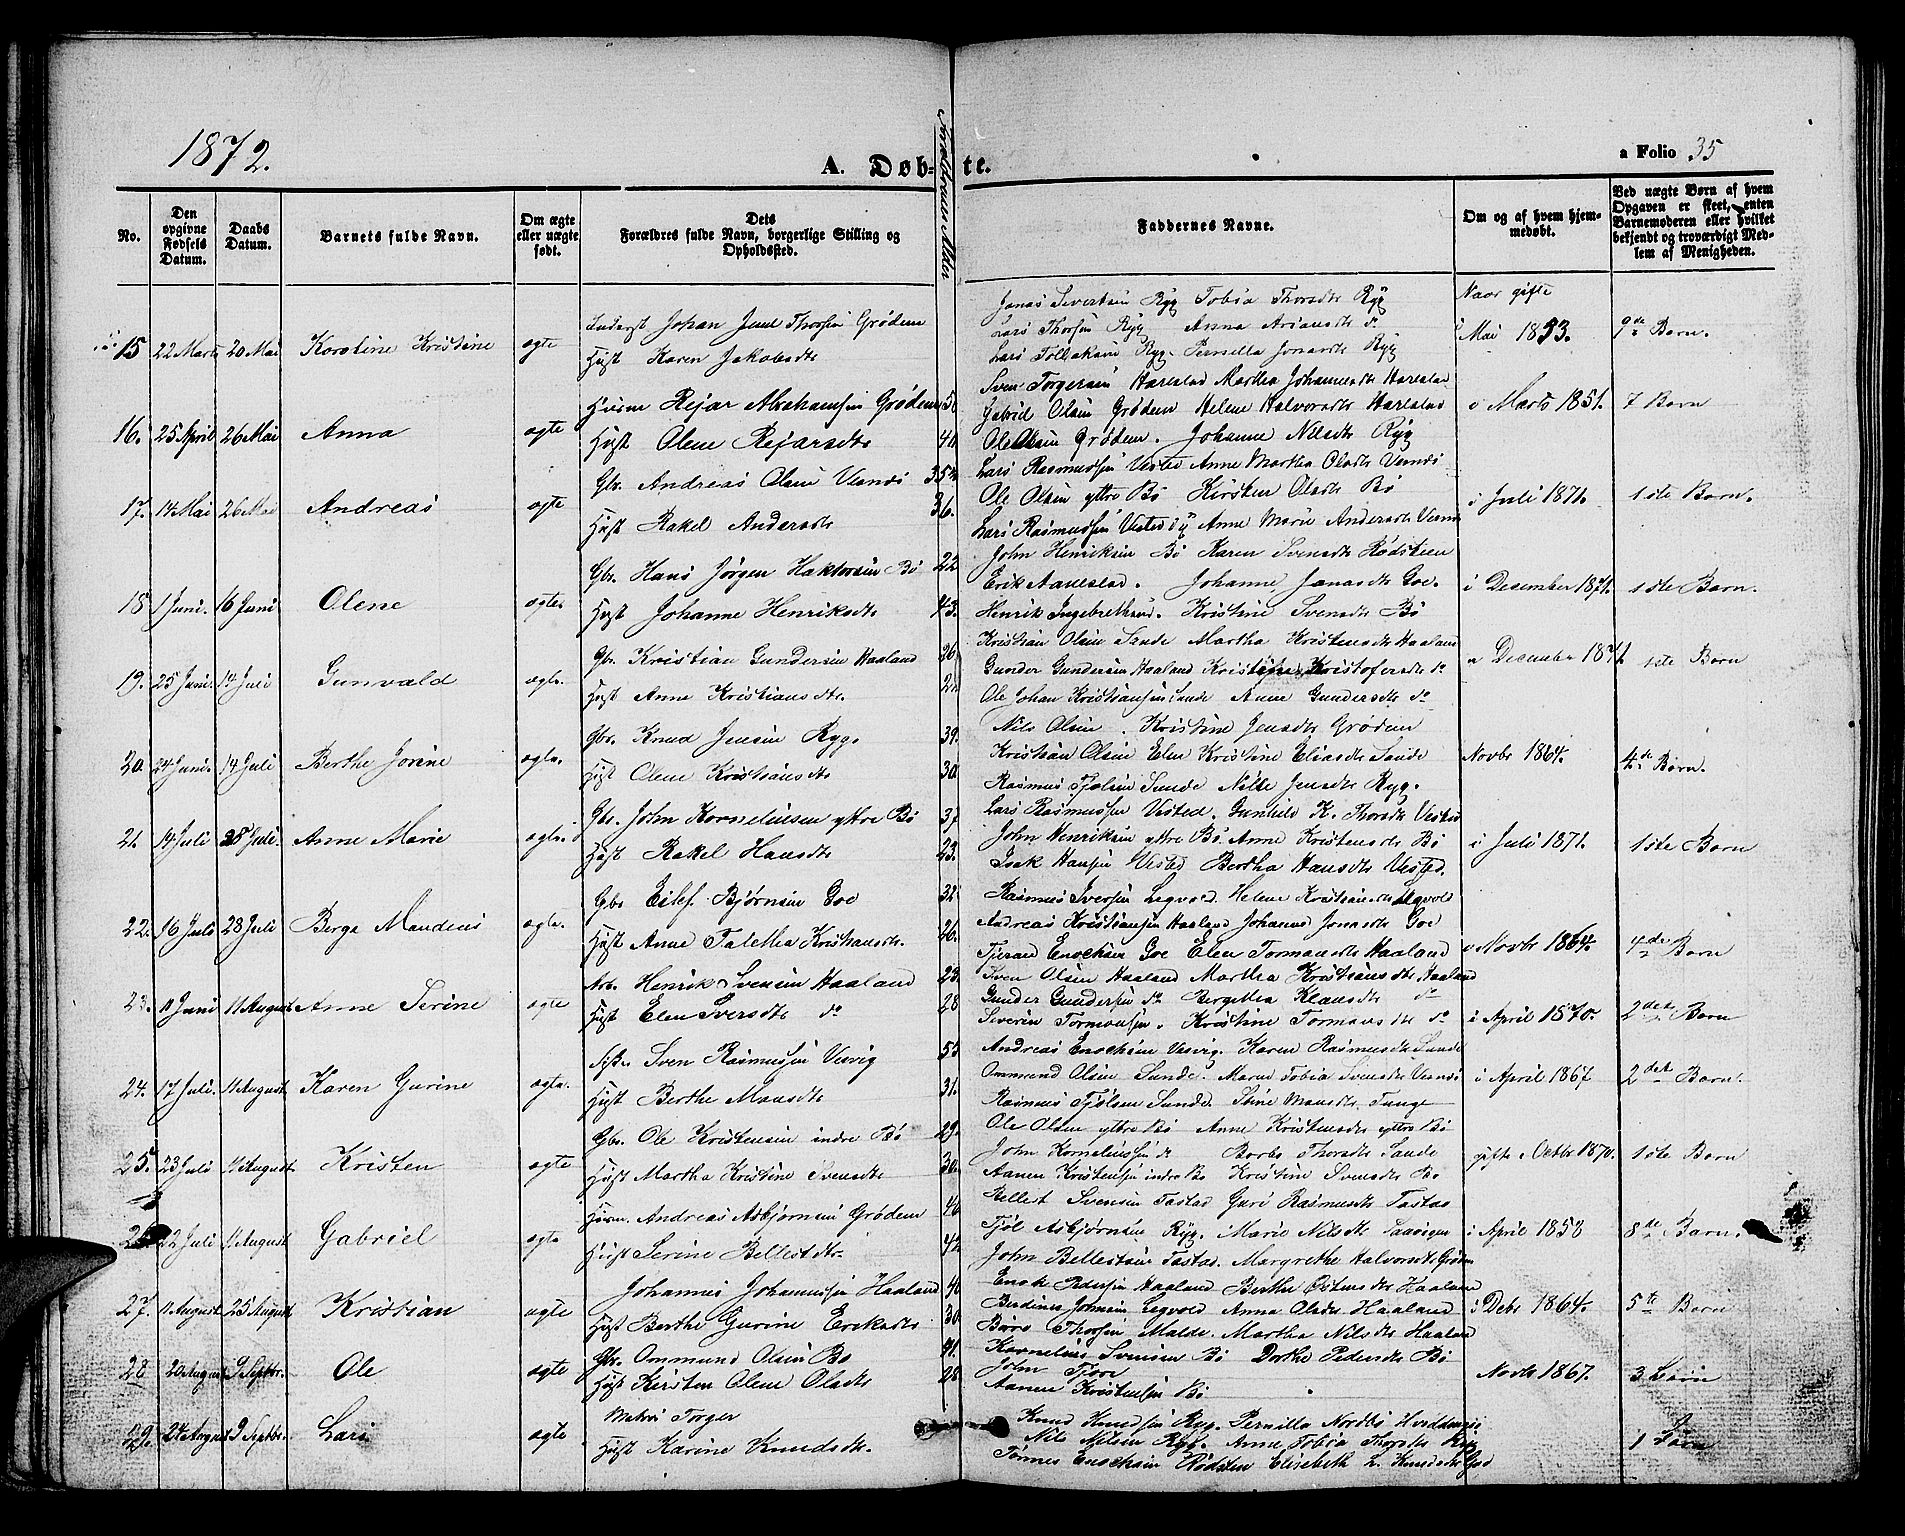 1872.
A. Døbte.
Forældrenes Alder
a Folio 35
No.
Den opgivne Fødsels Datum.
Daabs Datum.
Barnets fulde Navn.
Om ægte eller uægte født.
Dets Forældres fulde Navn, borgerlige Stilling og Opholdssted.
Faddernes Navne.
Om og af hvem hjemmedøbt.
Ved uægte Børn af hvem Opgaven er skeet, enten Barnemoderen eller hvilket bekjendt og troværdigt Medlem af Menigheden.
Naar gifte
15 22 Marts 20 Mai Karotine Kristine ægte
Johan Thorsen Grødem
Hust Karen Jakobsdtr
Jonas Sivertsen Ryg Tobia Thorsdtr Ryg
Lars Thorsen Ryg Anna Ariansdtr do
Lars Tollaksen Ryg. Pernilla Jonasdtr Ryg
Mai 1853. 9de Barn.
16. 25 April 26 Mai Anna ægte
Husm Rejar Abrahamsen Grødem 50
Hust Olene Rejarsdtr 40
Sven Torgersen Harestad Martha Johannesdtr Harestad
Gabriel Olsen Grødem Helene Halvorsdtr Harestad
Ole Olsen Grødem. Johanne Nilsdtr Ryg
i Marts 1851. 7 Barn
17. 14 Mai 26 Mai Andreas ægte
Gbr. Andreas Olsen Visnes 35
Hust Rakel Andersdtr 36.
Lars Rasmussen Vested Anne Martha Olsdtr Visnes
Ole Olsen yttre Bø Kirsten Olsdtr Bø
Lars Rasmussen Vested Anne Marie Andersdtr
i Juli 1871. 1ste Barn.
18 1 Juni. 16 Juni Olene ægte
Gbr. Hans Jørgen Haktorsen Bø 22
Hust Johanne Henriksdtr 43.
John Henriksen Bø Karen Svensdtr Rødsteen
Erik Aarestad. Johanne Jonasdtr Goe.
Henrik Ingebrethsen. Kristine Svensdtr Bø
i Desember 1871. 1ste Barn.
19. 25 Juni. 14 Juli Gunvald ægte
Gbr. Kristian Gundersen Haaland 26
Hust Anne Kristiansdtr. 22
Kristian Olsen Sande Martha Kristensdtr Haaland
Gunder Gundersen Haaland Kristine Kristofersdtr do
Ole Johan Kristiansen Sande Anne Gundersdtr do
i December 1871 1ste Barn
20. 24 Juni. 14 Juli Berthe Jorine ægte
Gbr. Knud Jensen Ryg. 39.
Hust Olene Kristiansdtr 30.
Nils Olsen. Kristine Jensdtr Grødem
Kristian Olsen Elen Kristine Eliasdtr Sande
Rasmus Tjølsen Sunde Nille Jensdtr Ryg.
Novbr 1864. 4de Barn.
21. 14 Juli 28 Juli. Anne Marie ægte.
Gbr. John Korneliusen yttre Bø 37.
Hust Rakel Hansdtr 23.
Lars Rasmussen Vested. Gunhild K. Thorsdtr Vested
John Henriksen yttre Bø. Anne Kristensdtr Bø
Isak Hansen Vested Bertha Hansdtr Vested.
i Juli 1871. 1ste Barn
22. 16 Juli 28 Juli Berge Mandius ægte.
Gbr Eilef Bjørnsen Goe 32
Hust Anne Talethea Kristiansdtr. 26.
Rasmus Iversen Legvold Helene Kristiansdtr Legvold
Andreas Kristiansen Haaland Johanne Jonasdtr Goe
Tjeran Enochsen Goe Elen Tormansdtr Haaland
i Novbr 1864. 4de Barn
23. 11 Juni 11 August Anne Serine ægte
Arb. Henrik Svensen Haaland 23.
Hust Elen Iversdtr do 28
Sven Olsen Haaland Martha Kristiansdtr Haaland
Gunder Gundersen do Bergithea Klausdtr do
Severin Tormansen. Kristine Tormansdtr do
i April 1870. 2det Barn
24. 17 Juli. 11 August Karen Gurine ægte.
Sven Rasmussen Visvig 55
Hust Berthe Monsdtr 31.
Andreas Enochsen Visvig. Karen Rasmusdtr Sunde
Ommund Olsen Sunde. Maren Tobia Svensdtr Visnes
Rasmus Tjølsen Sunde. Stine Monsdtr Tunge
i April 1867 2det Barn.
25. 23 Juli 11 August Kristen ægte
Gbr. Ole Kristensen indre Bø 29.
Hust Martha Kristine Svensdtr 30.
Ole Olsen yttre Bø Anne Kristensdtr yttre Bø
John Korneliussen do Thorsdtr Sande
Aanen Kristensen indre Bø Kristine Svensdtr Bø
gifte i Octbr 1870. 1ste Barn
26. 22 Juli 11 August Gabriel ægte
Husm. Andreas Asbjørnsen Grødem 46
Hust Serine Bellestdtr. 42.
Bellest Svensen Tastad Guri Rasmusdtr Tastad
Tjøl Asbjørnsen Ryg. Marie Nilsdtr
John Bellestsen Tastad. Margrethe Halvorsdtr Grødem
i April 1858 8de Barn.
27. 11 August 25 August Kristian ægte
Johannes Johannessen Haaland 40
Hust Berthe Gurine Eriksdtr 30.
Enok Pedersen Haaland Berthe Østensdtr Haaland
Berdines Johnsen Legvold Anna Olsdtr Haaland
Thorsen Malde. Martha Nilsdtr Haaland
i Debr 1864. 5te Barn
28 20 August 9 Septbr. Ole ægte
Gbr. Ommund Olsen Bø 41.
Hust Kirsten Olene Olsdtr 28
Kornelius Svensen Bø Dorthe Pedersdtr Bø
John Fjore
Aanen Kristensen Bø
Novbr 1867. 3 Børn
29. 24 August 9 Septbr. Lars ægte
Torger
Hust Karine Knudsdtr.
Knud Knudsen Ryg. Pernilla Nordbø
Nils Nilsen Ryg. Anne Tobia Thorsdtr Ryg
Tønnes Enochsen Rødsten Elisebeth L. Knudsdtr
1 Barn